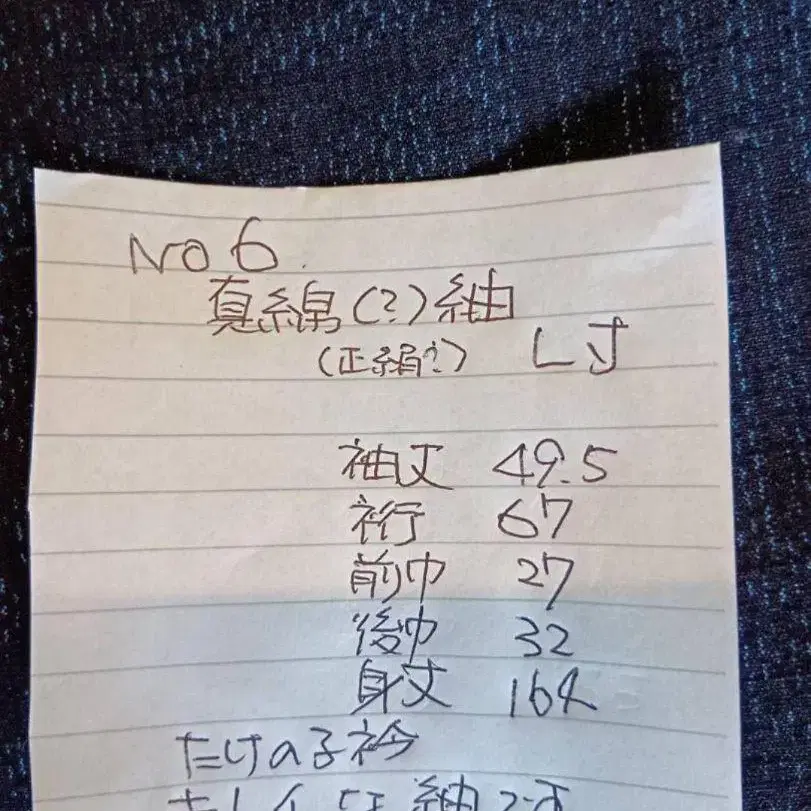 NO 6.
真綿(?)紬
(正絹?) L寸
袖丈 49.5
裄 67
前巾 27
後巾 32
身丈 164
たけの子衿